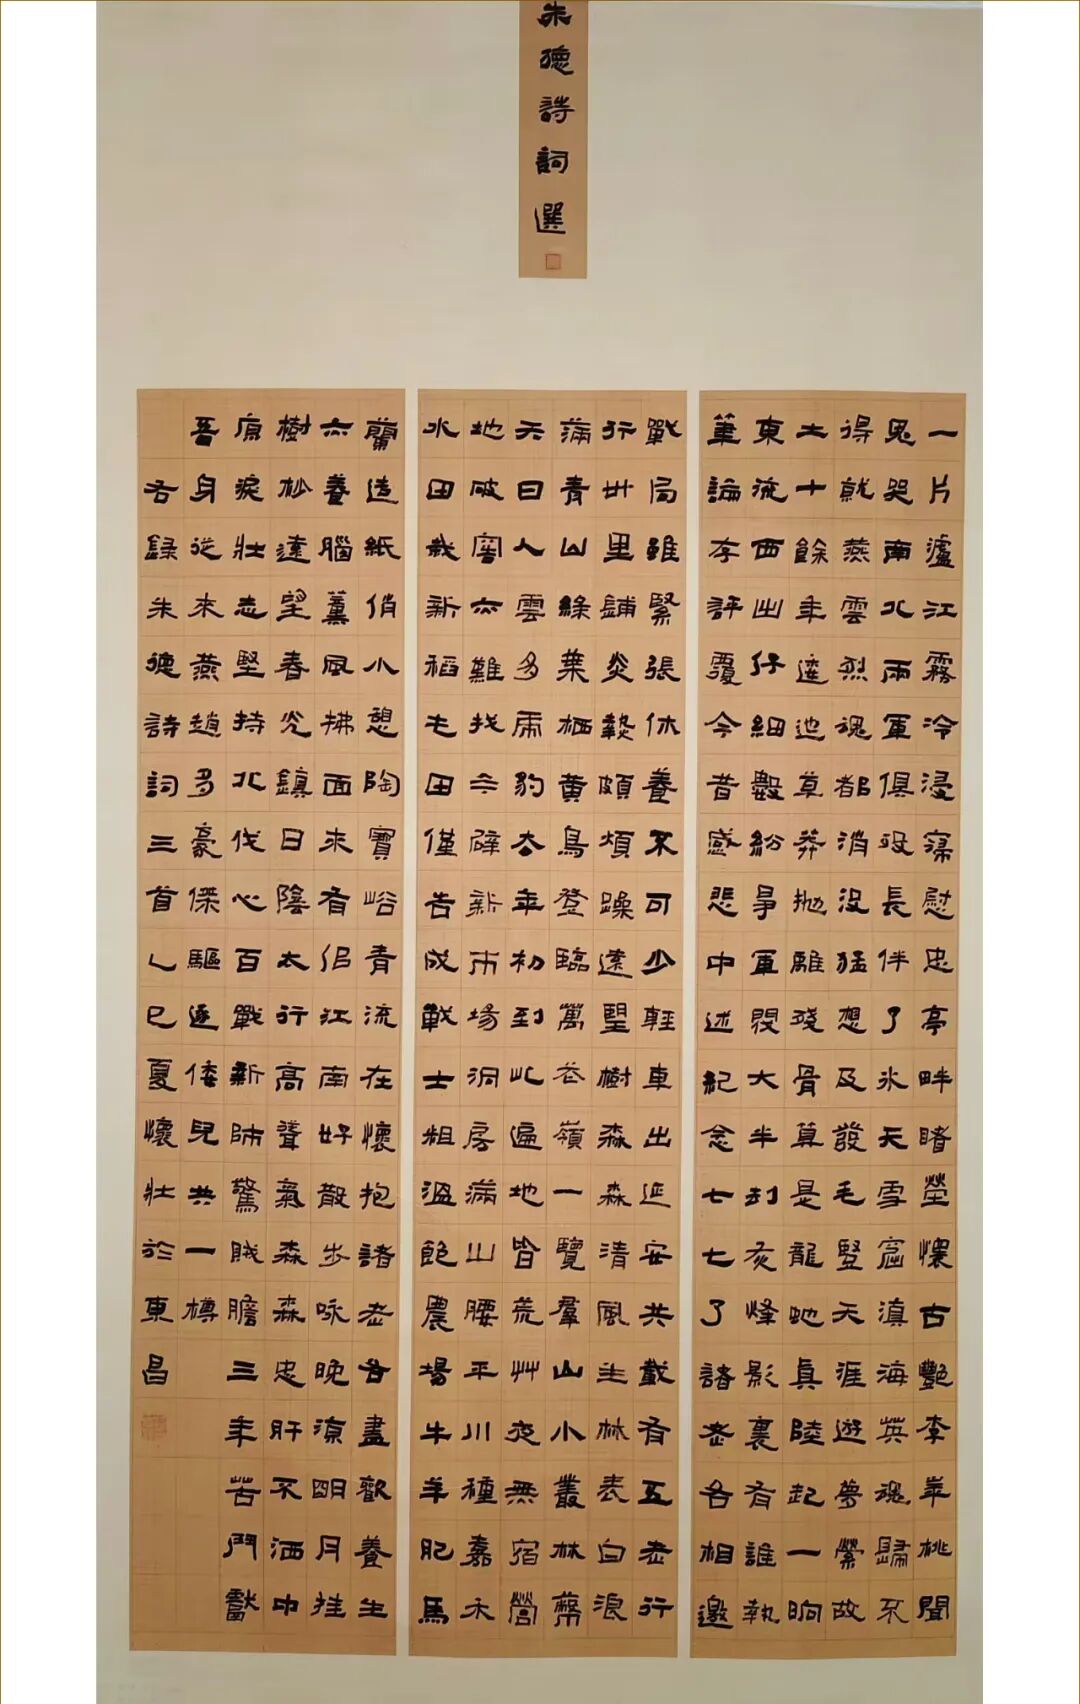 朱德詩詞選
一片瀘江霧冷浸慰忠亭畔睹塋懷古艷李羊桃聞
鬼哭南北兩軍俱毀長伴了冰天雪窟滇海英魂歸不
得就燕雲烈魂都消沒猛想及發毛豎天涯遊夢縈故
土十餘年違也草莽拋離殘骨算是龍虵真陸起一晌
東流西出仔細數紛爭軍閥大半刦灰烽影裏有誰執
筆論存評覆今昔感悲中述紀念七七了諸老各相邀
戰局雖緊張休養不可少輕車出延安共載有五老行
行卅里鋪炎熱頗煩躁遠望樹森森清風生林表白浪
滿青山綠葉栖黃鳥登臨萬谷嶺一覽羣山小叢林蔽
天日人雲多虎豹去年初到此遍地皆荒艸夜無宿營
地破窰亦難找今辟新市場洞房滿山腰平川種嘉禾
水田栽新稻屯田僅告成戰士粗溫飽農場牛羊肥馬
蘭造紙俏小憩陶寶峪青流在懷抱諸老各盡歡養生
亦養腦薰風拂面來有佀江南好散步咏晚涼明月挂
樹杪遠望春光鎮日陰太行高聳氣森森忠肝不洒中
原淚壯志堅持北伐心百戰新師驚賊膽三年苦鬥獻
吾身從來燕趙多豪傑驅逐倭兒共一樽
右錄朱德詩詞三首乙巳夏懷壯於東昌